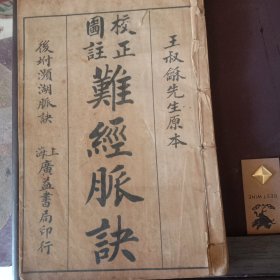 王叔龢先生原本
校正
圖註
難經脈訣
後附瀕湖脈訣
上海
廣益書局印行
BEST WINE